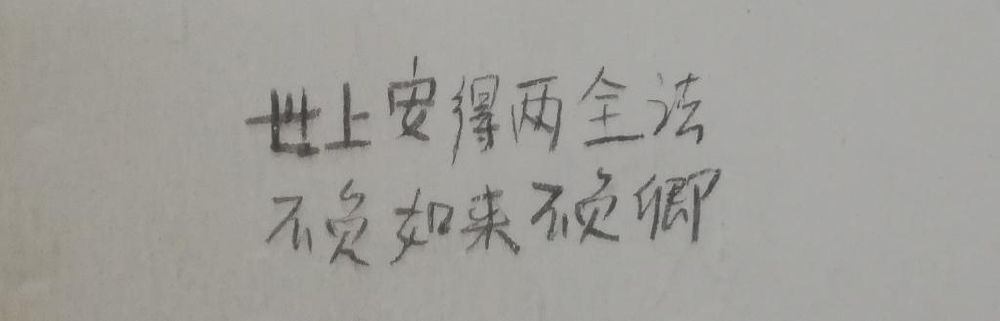 世上安得两全法
不负如来不负卿